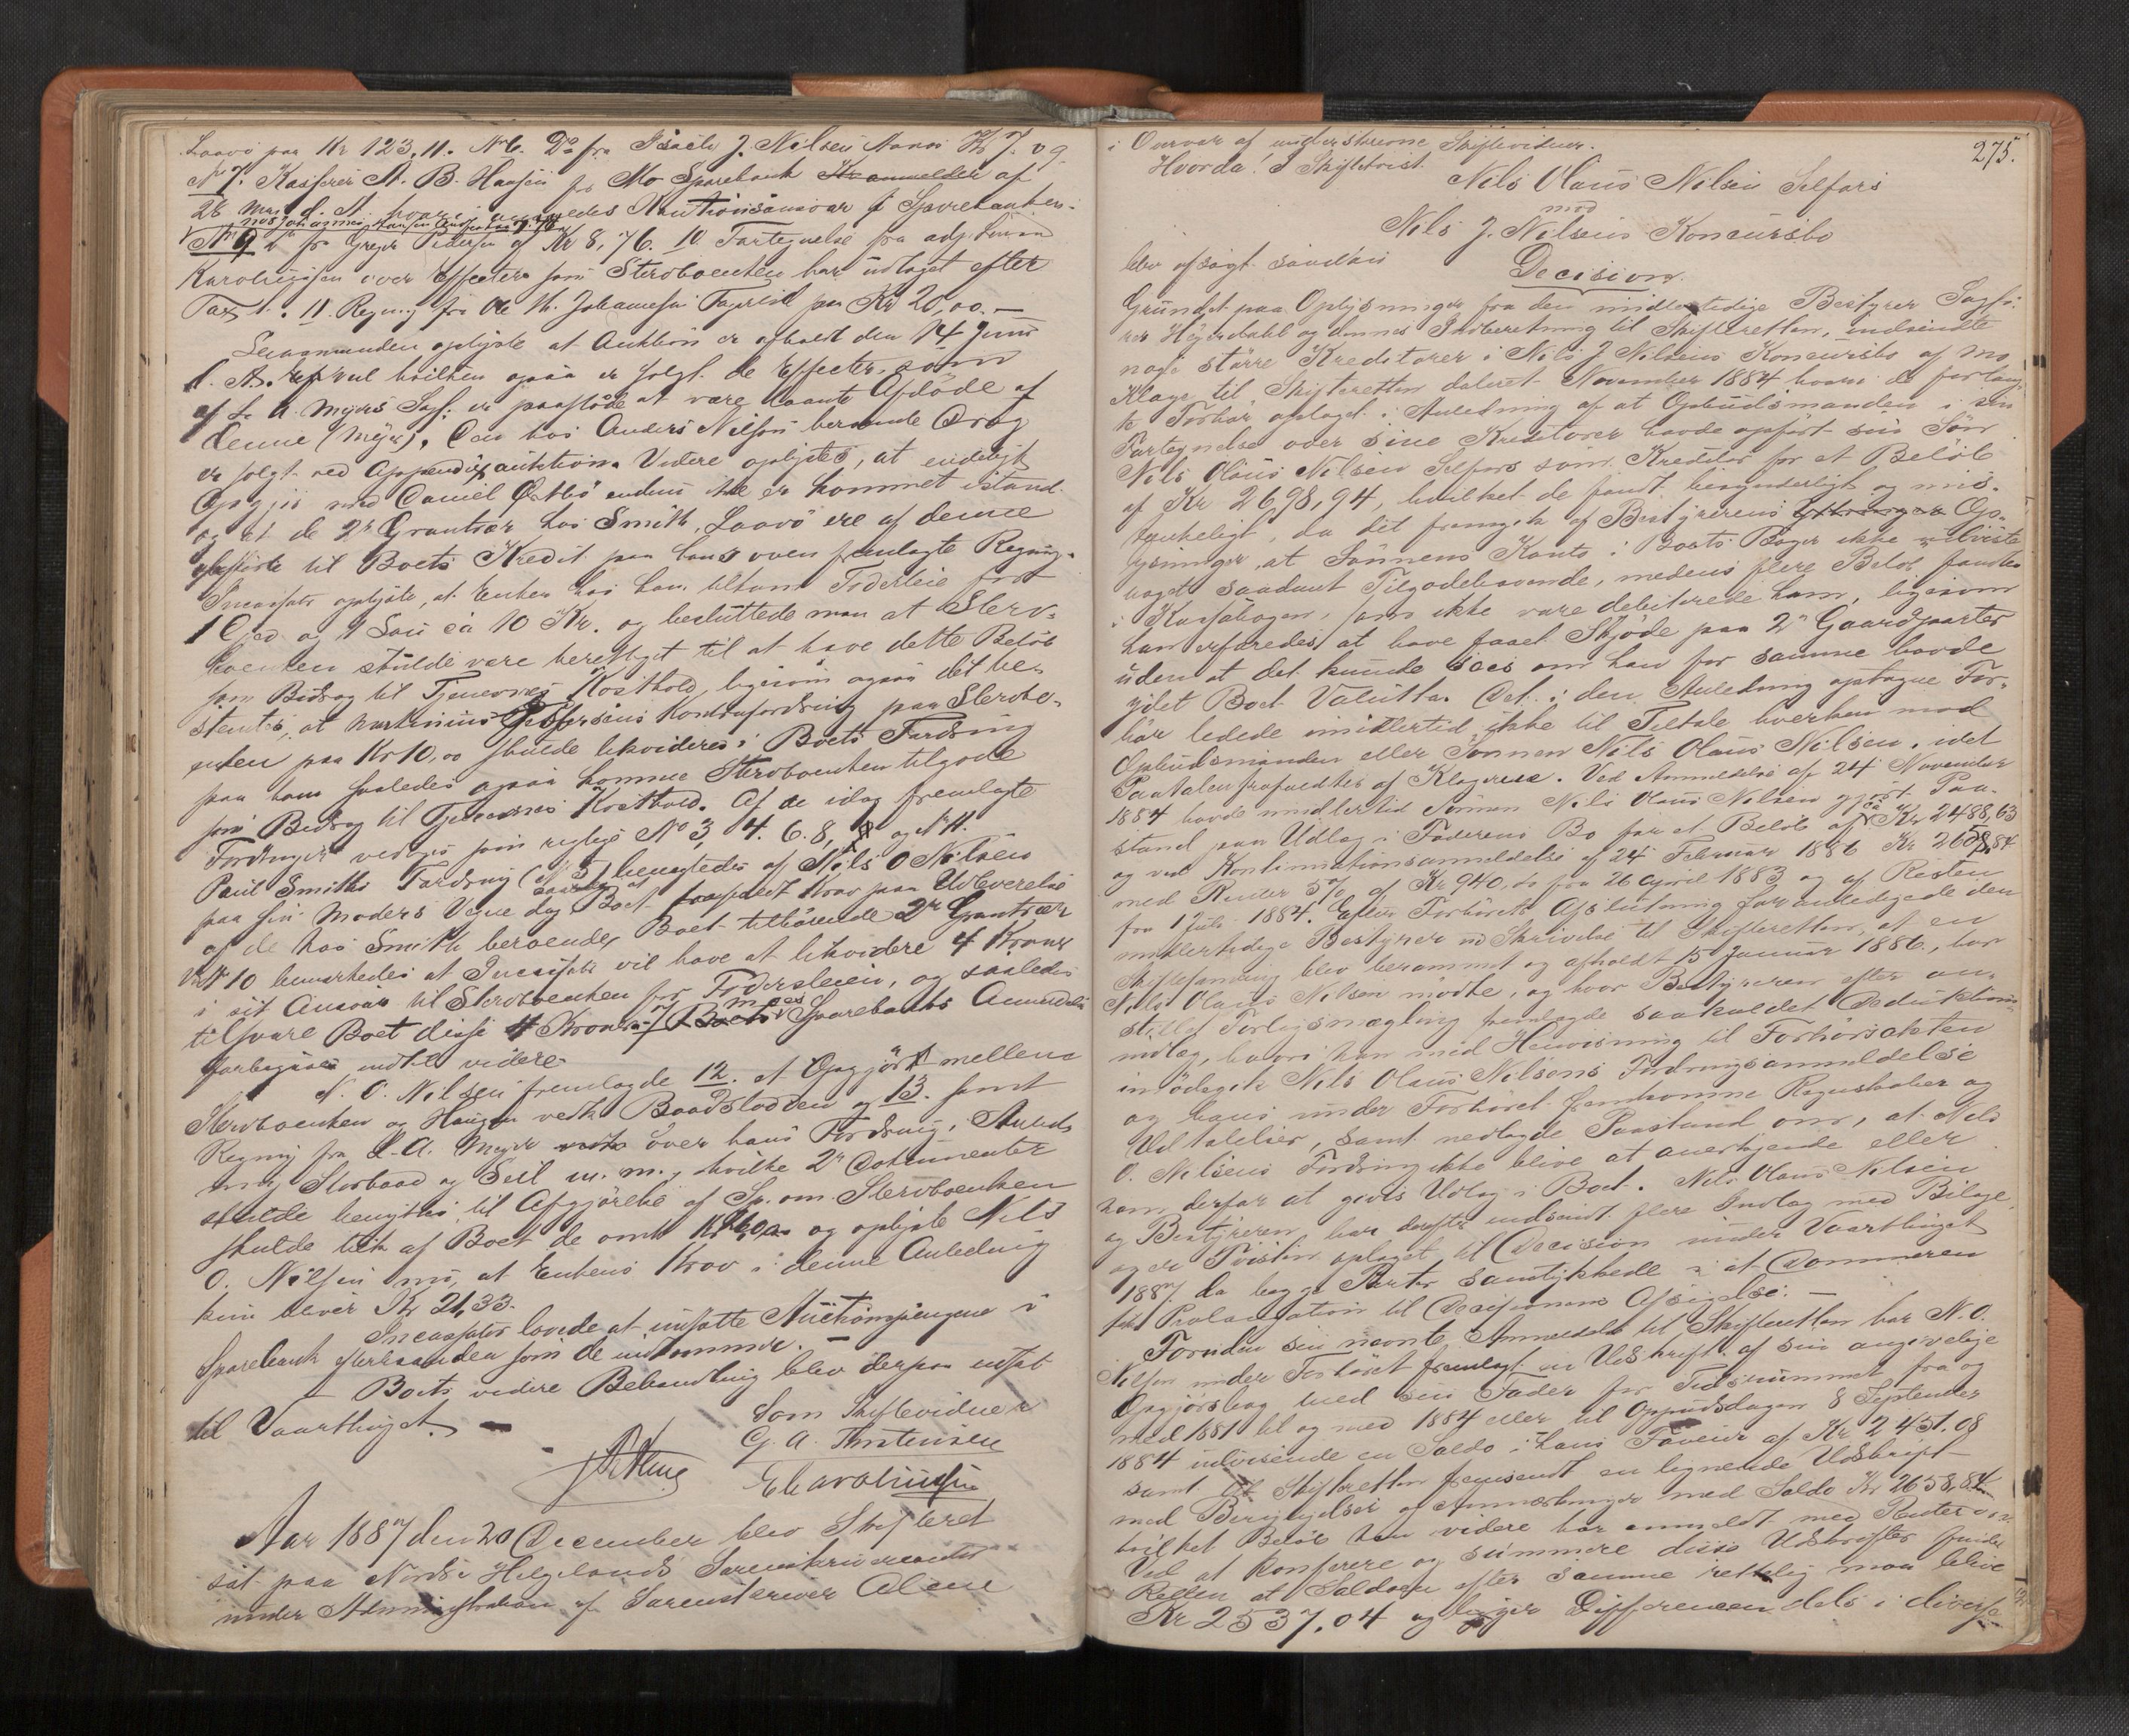 Laavø paa Kr 123,11. No 6. Do fra Isach J. Nilsen Kr 7. og
No 7. Kasserer A. B. Hansen for Mo Sparebank af
28 Mai d. A. hvori Kautionsansvar f Sparebanken.
No 9 Do fra Greger Pedersen af Kr 8,76. 10 Fortegnelse fra adj. Lensm
Karoliussen over Effecter som Stervboenken har udtaget efter
Taxt. 11. Regning fra Ole M. Johannesen paa Kr 20,00.—
Lensmanden oplyste at Auktion er afholdt den 14 Juni
d. A. hvilken ogsaa er solgt de Effecter som
af L. A. Meyers Sagf. er paastaaet at være laante af
denne (Meyer). Den hos Anders Nilsen beroende Drog
er solgt ved Appendix auktion. Videre oplystes, at endeligt
Opgjør med Daniel Ørtbø endnu ikke er kommet istand
og at de 2de Grantrær hos Smith, Laavø ere af denne
opførte til Boets Kredit paa hans oven fremlagte Regning.
Incassator oplyste, at Enken hos ham tilkom Foderleie for
1 Gjed og 1 Sau ca 10 Kr. og besluttede man at Sterv-
boenken skulde være berettiget til at have dette Beløb
som Bidrag til Tjenernes Kosthold, ligesom ogsaa det be-
stemtes, at Kontrafordring paa Stervbo-
enken paa Kr 10,00 skulde likvideres i Boets Fordring
paa ham saaledes ogsaa komme Stervboenken tilgode
som Bidrag til Tjenernes Kosthold. Af de idag fremlagte
Fordringer vedtoges som rigtige No 3, 4. 6. 8, og No 11.
Paul Smiths Fordring (No 5) benegtedes af Nils O Nilsen
paa sin Moders Vegne og Boet Krav paa Udleverelse
af de hos Smith beroende, Boet tilhørende 2de Grantrær
Ved No 10 bemærkedes at Incassator vil have at likvidere 4 Kroner
i sit Ansvar til Stervboenken for Foderleien, og saaledes
tilsvare Boet disse 4 Kroner. Moes Sparebanks Anmeldelse
forbigaaes indtil videre.
N. O. Nilsen fremlagde 12. et Opgjør mellem
Stervboenken og Haugen vedk. Baadstødden og 13. samt
Regning fra L. A. Meyer over hans Fordring, Anders
Storbaad og Seil m. m., hvilke 2de Dokumenter
skulde benyttes til Afgjørelse af Sp. om Stervboenken
skulde af Boet de omh. og oplyste Nils
O. Nilsen nu, at Enkens Krav i denne Anledning
kun bliver Kr 21,33.
Incassator lovede at indsætte Auctionspengene i
Sparebank efterhaanden som de indkommer. —
Boets videre Behandling blev derpaa udsat
til Vaarthinget.
Som Skiftevidner
G. A. Thorstensen
E Caroliussen
Aar 1887 den 20 December blev Skifteret
sat paa Nordre Helgelands Sorenskriverkontor
under Administration af Sorenskriver Alene
275.
i Overvær af underskrevne Skiftevidner.
Hvorda! I Skiftetvist
Nils Olaus Nilsen Selfors
mod
Nils J. Nilsens Konkursbo
blev afsagt saadan
Decision.
Grundet paa Oplysninger fra den midlertidige Bestyrer Sagfø-
rer Høyerdahl og dennes Indberetning til Skifteretten, indsendte
nogle større Kreditorer i Nils J. Nilsens Konkursbo af Mo
Klage til Skifteretten dateret November 1884 hvori de forlang-
te Forhør optaget i Anledning af at Opbudsmanden i sin
Fortegnelse over sine Kreditorer havde opført sin Søn
Nils Olaus Nilsen Selfors som Kreditor for et Beløb
af Kr 2698,94, hvilket de fandt besynderligt og mis-
tænkeligt, da det fremgik af Bestyrerens Op-
lysninger, at Sønnens Konto i Boets Bøger ikke udviste
noget saadant Tilgodehavende, medens flere Beløb fandtes
i Kassabogen, som ikke vare debiterede ham, ligesom
han erfaredes at have faaet Skjøde paa 2de Gaardparter
uden at det kunde sees om han for samme havde
ydet Boet Valuta. Det i den Anledning optagne For-
hør ledede imidlertid ikke til Tiltale hverken mod
Opbudsmanden eller Sønnen Nils Olaus Nilsen, idet
Paatalen frafaldtes af Klagerne. Ved Anmeldelse af 24 November
1884 havde imidlertid Sønnen Nils Olaus Nilsen gjort Paa-
stand paa Udlæg i Faderens Bo for et Beløb af Kr 2488,63
og ved Kontinuationsanmeldelse af 24 Februar 1886 Kr 2658,84
med Renter 5% af Kr 940,00 fra 26 April 1883 og af Resten
fra 1 Juli 1884. Efter Forhørets Afslutning foranledigede den
midlertidige Bestyrer ved Skrivelse til Skifteretten, at en
Skiftesamling blev berammet og afholdt 15 Januar 1886, hvor
Nils Olaus Nilsen mødte, og hvor Bestyreren efter an-
stillet Forligsmægling fremlagde saakaldet Deduktions-
indlæg, hvori han med Henvisning til Forhørsakten
imødegik Nils Olaus Nilsens Fordringsanmeldelse
og hans under Forhøret fremkomne Regnskaber og
Udtalelser, samt nedlagde Paastand om, at Nils
O. Nilsens Fordring ikke blive at anerkjende eller
ham derfor at gives Udlæg i Boet. Nils Olaus Nilsen
og Bestyreren har derefter indsendt flere Indlæg med Bilage,
og er Tvisten optaget til Decision under Vaarthinget
1887, da begge Parter samtykkede i at Dommeren
fik Prolongation til Decisionens Afsigelse. —
Foruden sin nævnte Anmeldelse til Skifteretten har N. O.
Nilsen under Forhøret fremlagt en Udskrift af sin angivelige
Opgjørsbog med sin Fader for Tidsrummet fra og
med 1881 til og med 1884 eller til Opbudsdagen 8 September
1884 udvisende en Saldo i hans Faveur af Kr 2451.08
samt til Skifteretten fremsendt en lignende Udskrift
med Berigtigelser og Anmærkninger med Saldo Kr 2658,84
hvilket Beløb han videre har anmeldt med Renter o s v.
Ved at konferere og summere disse Udskrifter finder
Retten at Saldoen efter samme rettelig maa blive
Kr 2537,04 og ligger Differencen dels i diverse